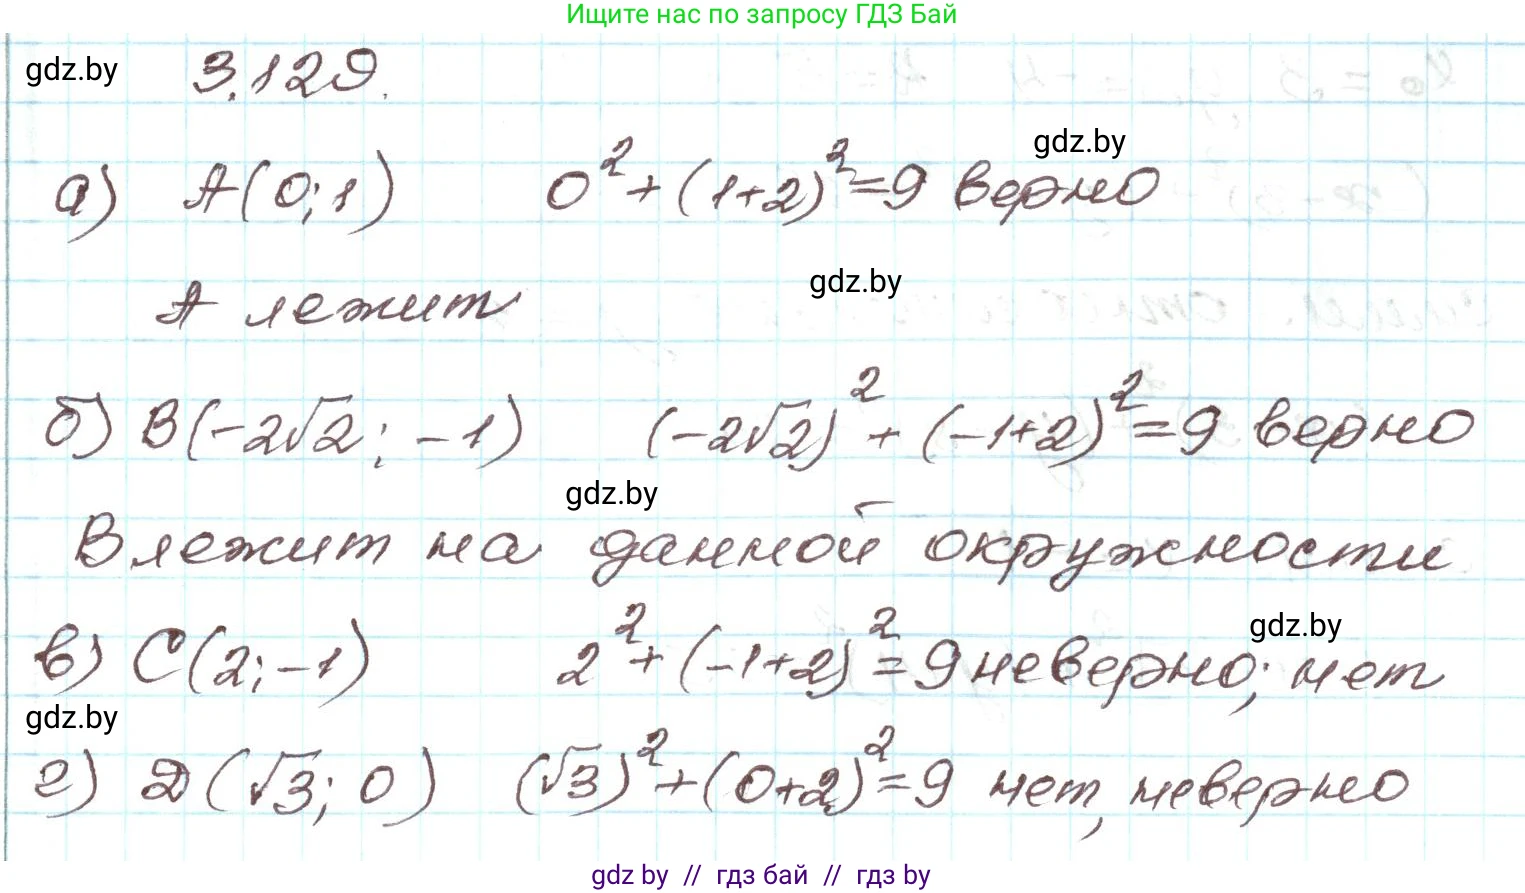 Ищите нас по запросу ГДЗ Бай
gdz.by 3.129.
gdz.by
а) A(0;1) 0²+(1+2)²=9 верно
A лежит gdz.by
б) B(-2√2; -1) (-2√2)²+(-1+2)²=9 верно
gdz.by
B лежит на данной окружности
gdz.by
в) C(2;-1) 2²+(-1+2)²=9 неверно; нет
gdz.by
г) D(√3; 0) (√3)²+(0+2)²=9 нет, неверно
gdz by // гдз бай // гдз by